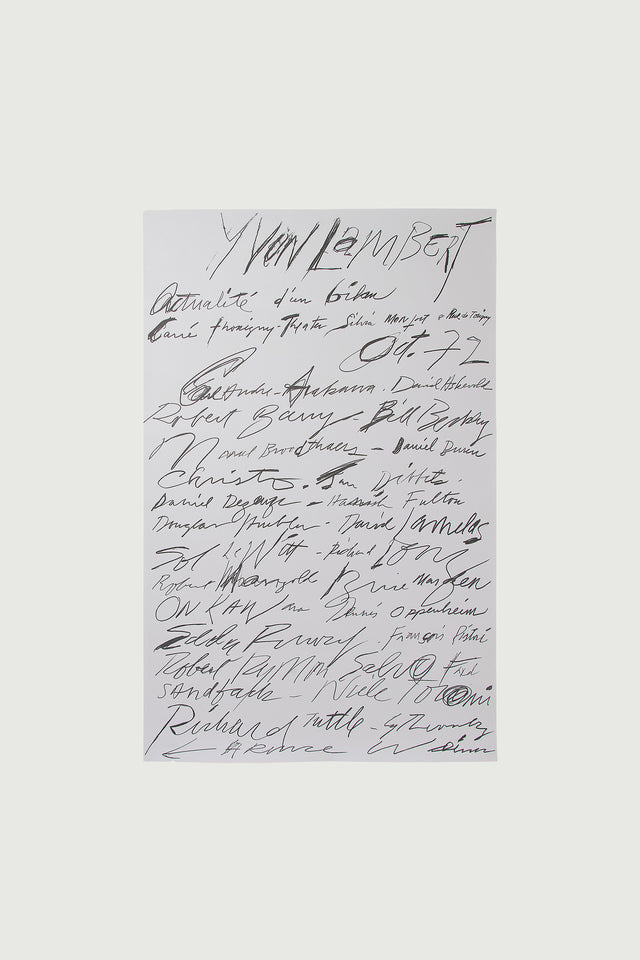 YVON LAMBERT
Actualité d'un bilan
Carré Thorigny-Theater Silvia Monfort 8 Rue de Torigny
Oct. 72
Carl Andre - Arakawa. David Askevold
Robert Barry - Bill Beckley
Marcel Broodthaers - Daniel Buren
Christo. Jan Dibbets.
Daniel Dezeuze - Hamish Fulton
Douglas Huebler - David Lamelas
Sol LeWitt - Richard Long
Robert Mangold Brice Marden
ON KAWara Dennis Oppenheim
Edda Renouf. François Ristori
Robert Ryman Salvo Fred
SANdback - Niele Toroni
Richard Tuttle - Cy Twombly
LaWRence Weiner